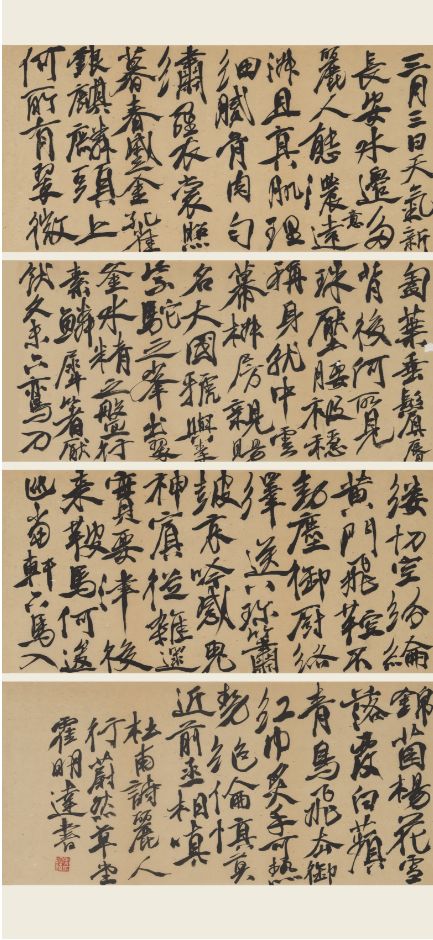 三月三日天氣新
長安水邊多
麗人態濃意遠
淑且真肌理
細膩骨肉勻
繡羅衣裳照
暮春蹙金孔雀
銀麒麟頭上
何所有翠微
㔩葉垂鬢唇
背後何所見
珠壓腰衱穩
稱身就中雲
幕椒房親賜
名大國虢與秦
紫駝之峯出翠
釜水精之盤行
素鱗犀箸厭
飫久未下鸞刀
縷切空紛綸
黃門飛鞚不
動塵御廚絡
繹送八珍簫
鼓哀吟感鬼
神賓從雜遝
實要津後
來鞍馬何逡
巡當軒下馬入
錦茵楊花雪
落覆白蘋
青鳥飛去銜
紅巾炙手可熱
勢絕倫慎莫
近前丞相嗔
杜甫詩麗人
行蔚然草堂
霍明達書